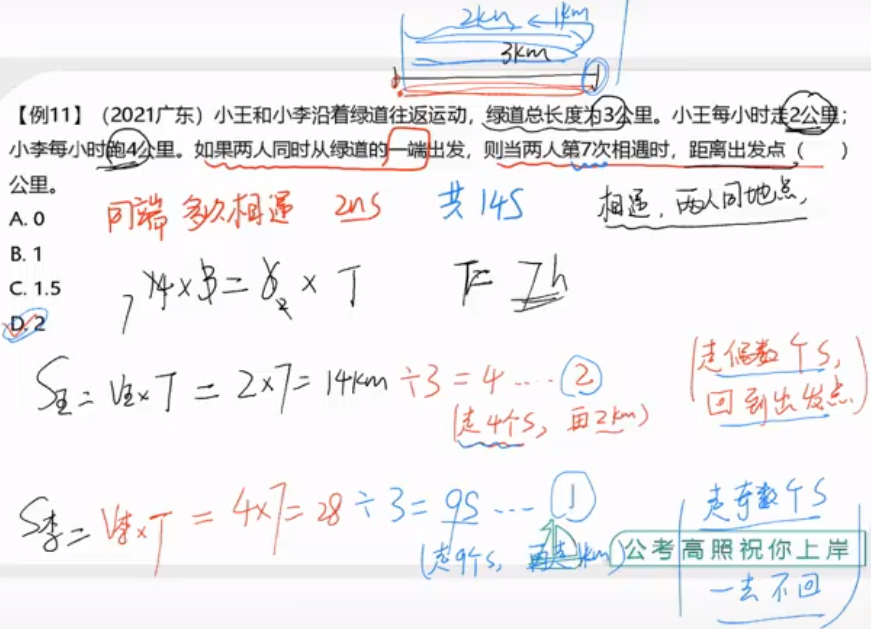 2km ← 1km
3km
【例11】（2021广东）小王和小李沿着绿道往返运动，绿道总长度为3公里。小王每小时走2公里；
小李每小时跑4公里。如果两人同时从绿道的一端出发，则当两人第7次相遇时，距离出发点（ ）
公里。
A. 0
B. 1
C. 1.5
D. 2
同端 多次相遇 2nS 共14S 相遇，两人同地点，
14×3=6×T T=7h
S王=V王×T=2×7=14km÷3=4……②
(走4个S，再2km)
(走偶数个S，
回到出发点)
S李=V李×T=4×7=28÷3=9S……①
(走9个S，再走1km)
(走奇数个S
一去不回)
公考高照祝你上岸